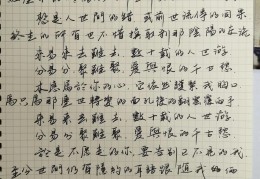 總是人世間的錯 或前世流傳的因果
終生的所有也不惜換取刹那陰陽的交流
來易來去難去 數十載的人世遊
分易分聚難聚 愛與恨的千古愁
本應屬於你的心 它依然護緊我胸口
為只為那塵世轉變的面孔後的翻雲覆雨手
來易來去難去 數十載的人世遊
分易分聚難聚 愛與恨的千古愁
於是不願走的你 要告別已不見的我
至今世間仍有隱約的耳語跟隨我的傳